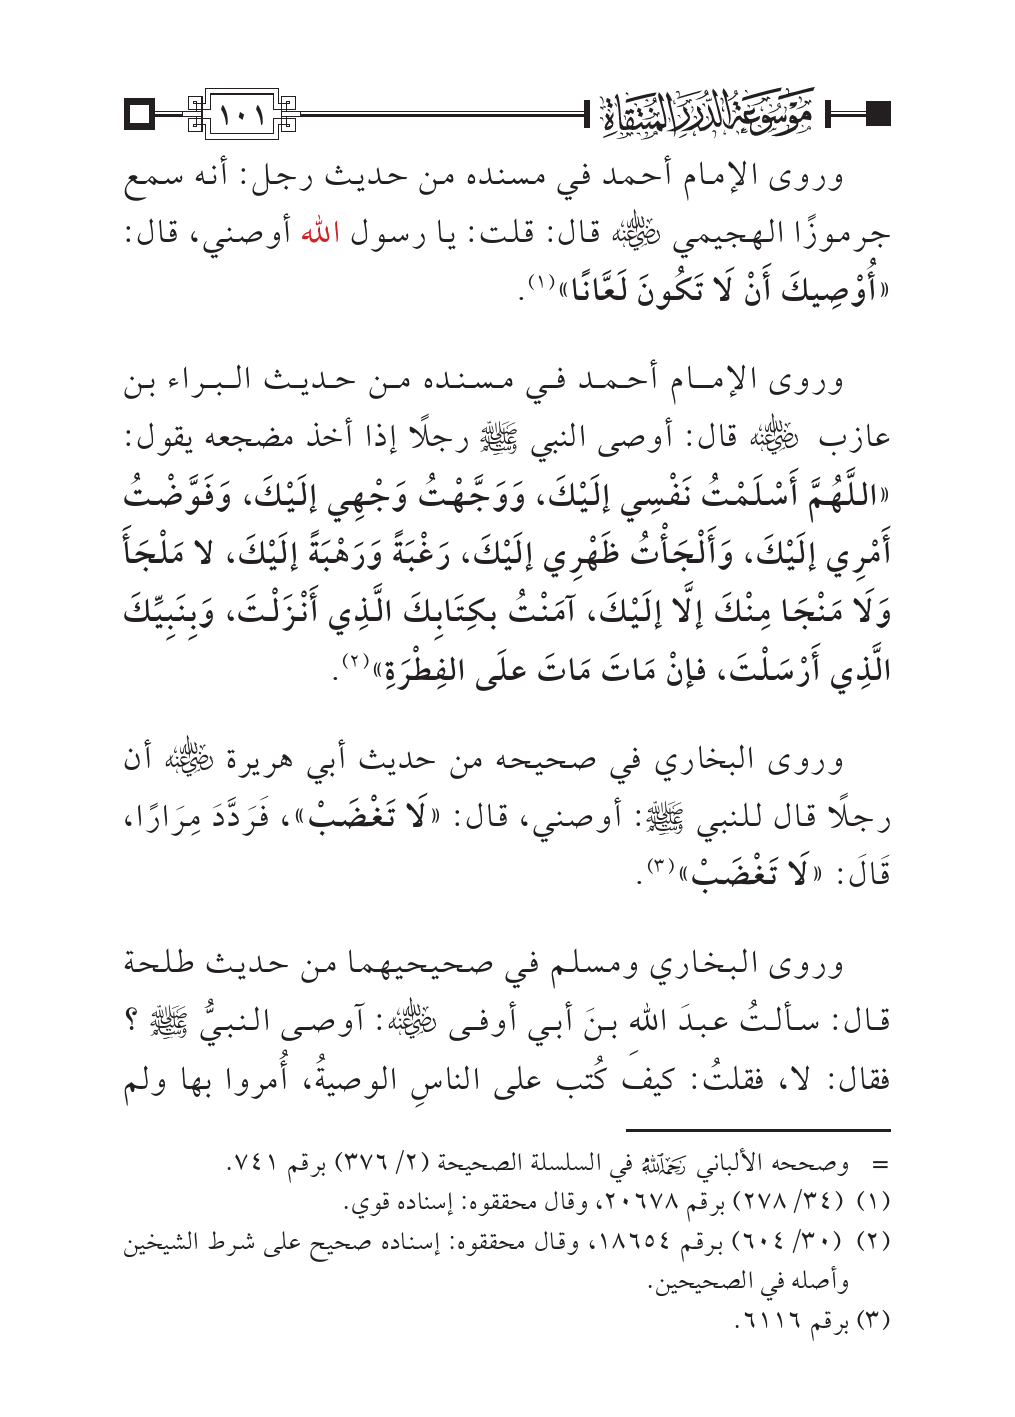 موسوعة الدرر المنتقاة
١٠١
وروى الإمام أحمد في مسنده من حديث رجل: أنه سمع
جرموزًا الهجيمي رضي الله عنه قال: قلت: يا رسول الله أوصني، قال:
«أُوْصِيكَ أَنْ لَا تَكُونَ لَعَّانًا»(١).
وروى الإمام أحمد في مسنده من حديث البراء بن
عازب رضي الله عنه قال: أوصى النبي ﷺ رجلًا إذا أخذ مضجعه يقول:
«اللَّهُمَّ أَسْلَمْتُ نَفْسِي إلَيْكَ، وَوَجَّهْتُ وَجْهِي إلَيْكَ، وَفَوَّضْتُ
أَمْرِي إلَيْكَ، وَأَلْجَأْتُ ظَهْرِي إلَيْكَ، رَغْبَةً وَرَهْبَةً إلَيْكَ، لا مَلْجَأَ
وَلَا مَنْجَا مِنْكَ إلَّا إلَيْكَ، آمَنْتُ بكِتَابِكَ الَّذِي أَنْزَلْتَ، وَبِنَبِيِّكَ
الَّذِي أَرْسَلْتَ، فإنْ مَاتَ مَاتَ علَى الفِطْرَةِ»(٢).
وروى البخاري في صحيحه من حديث أبي هريرة رضي الله عنه أن
رجلًا قال للنبي ﷺ: أوصني، قال: «لَا تَغْضَبْ»، فَرَدَّدَ مِرَارًا،
قَالَ: «لَا تَغْضَبْ»(٣).
وروى البخاري ومسلم في صحيحيهما من حديث طلحة
قال: سألتُ عبدَ اللهِ بنَ أبي أوفى رضي الله عنه: آوصى النبيُّ ﷺ ؟
فقال: لا، فقلتُ: كيفَ كُتب على الناسِ الوصيةُ، أُمروا بها ولم
= وصححه الألباني رحمه الله في السلسلة الصحيحة (٢/ ٣٧٦) برقم ٧٤١.
(١) (٣٤/ ٢٧٨) برقم ٢٠٦٧٨، وقال محققوه: إسناده قوي.
(٢) (٣٠/ ٦٠٤) برقم ١٨٦٥٤، وقال محققوه: إسناده صحيح على شرط الشيخين
وأصله في الصحيحين.
(٣) برقم ٦١١٦.